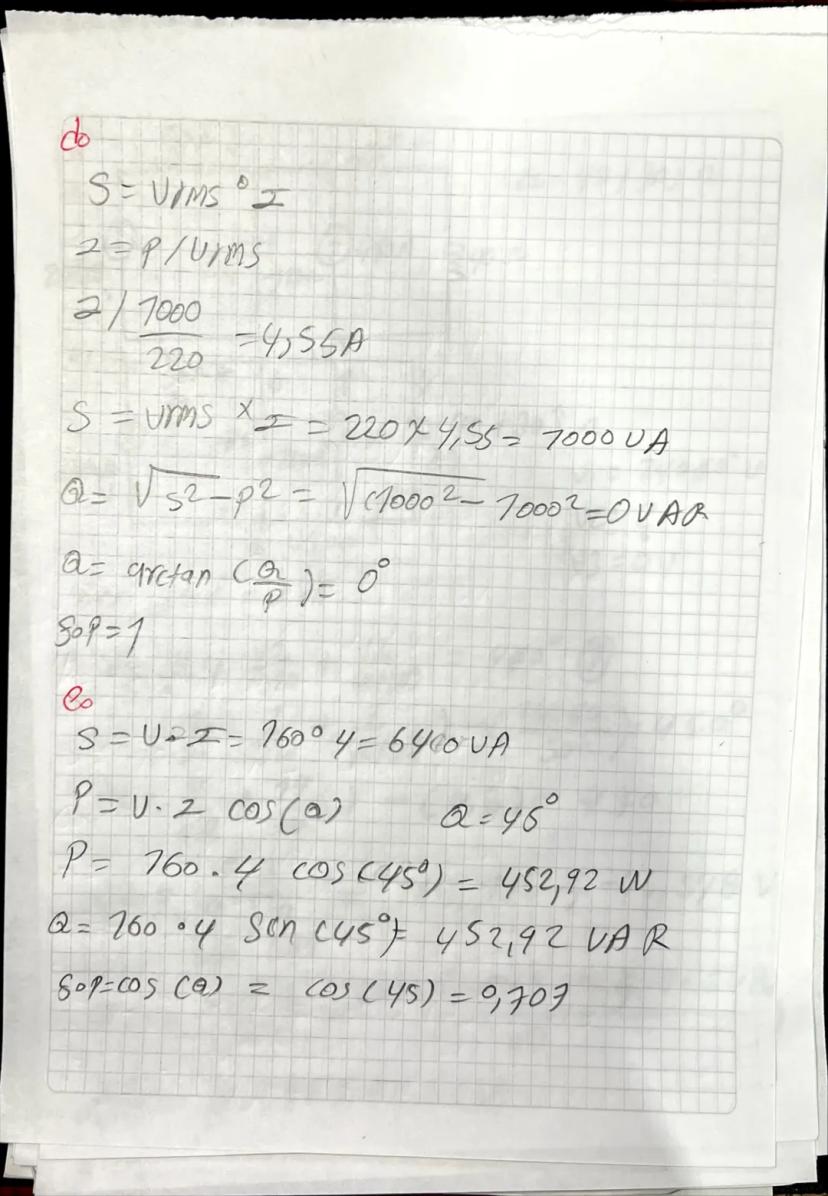 do
S = Vrms ° I
I = P / Vrms
I / 1000 / 220 = 4,55A
S = Vrms × I = 220 × 4,55 = 1000 VA
Q = √S² - P² = √(1000² - 1000² = 0 VAR
Q = arctan (Q/P) = 0°
foP = 1
eo
S = V • I = 160 ° 4 = 6400 VA
P = V · I cos(Q) Q = 45°
P = 160 . 4 cos (45°) = 452,92 W
Q = 160 • 4 Sen (45°) = 452,92 VAR
foP = cos (Q) = cos (45) = 0,707